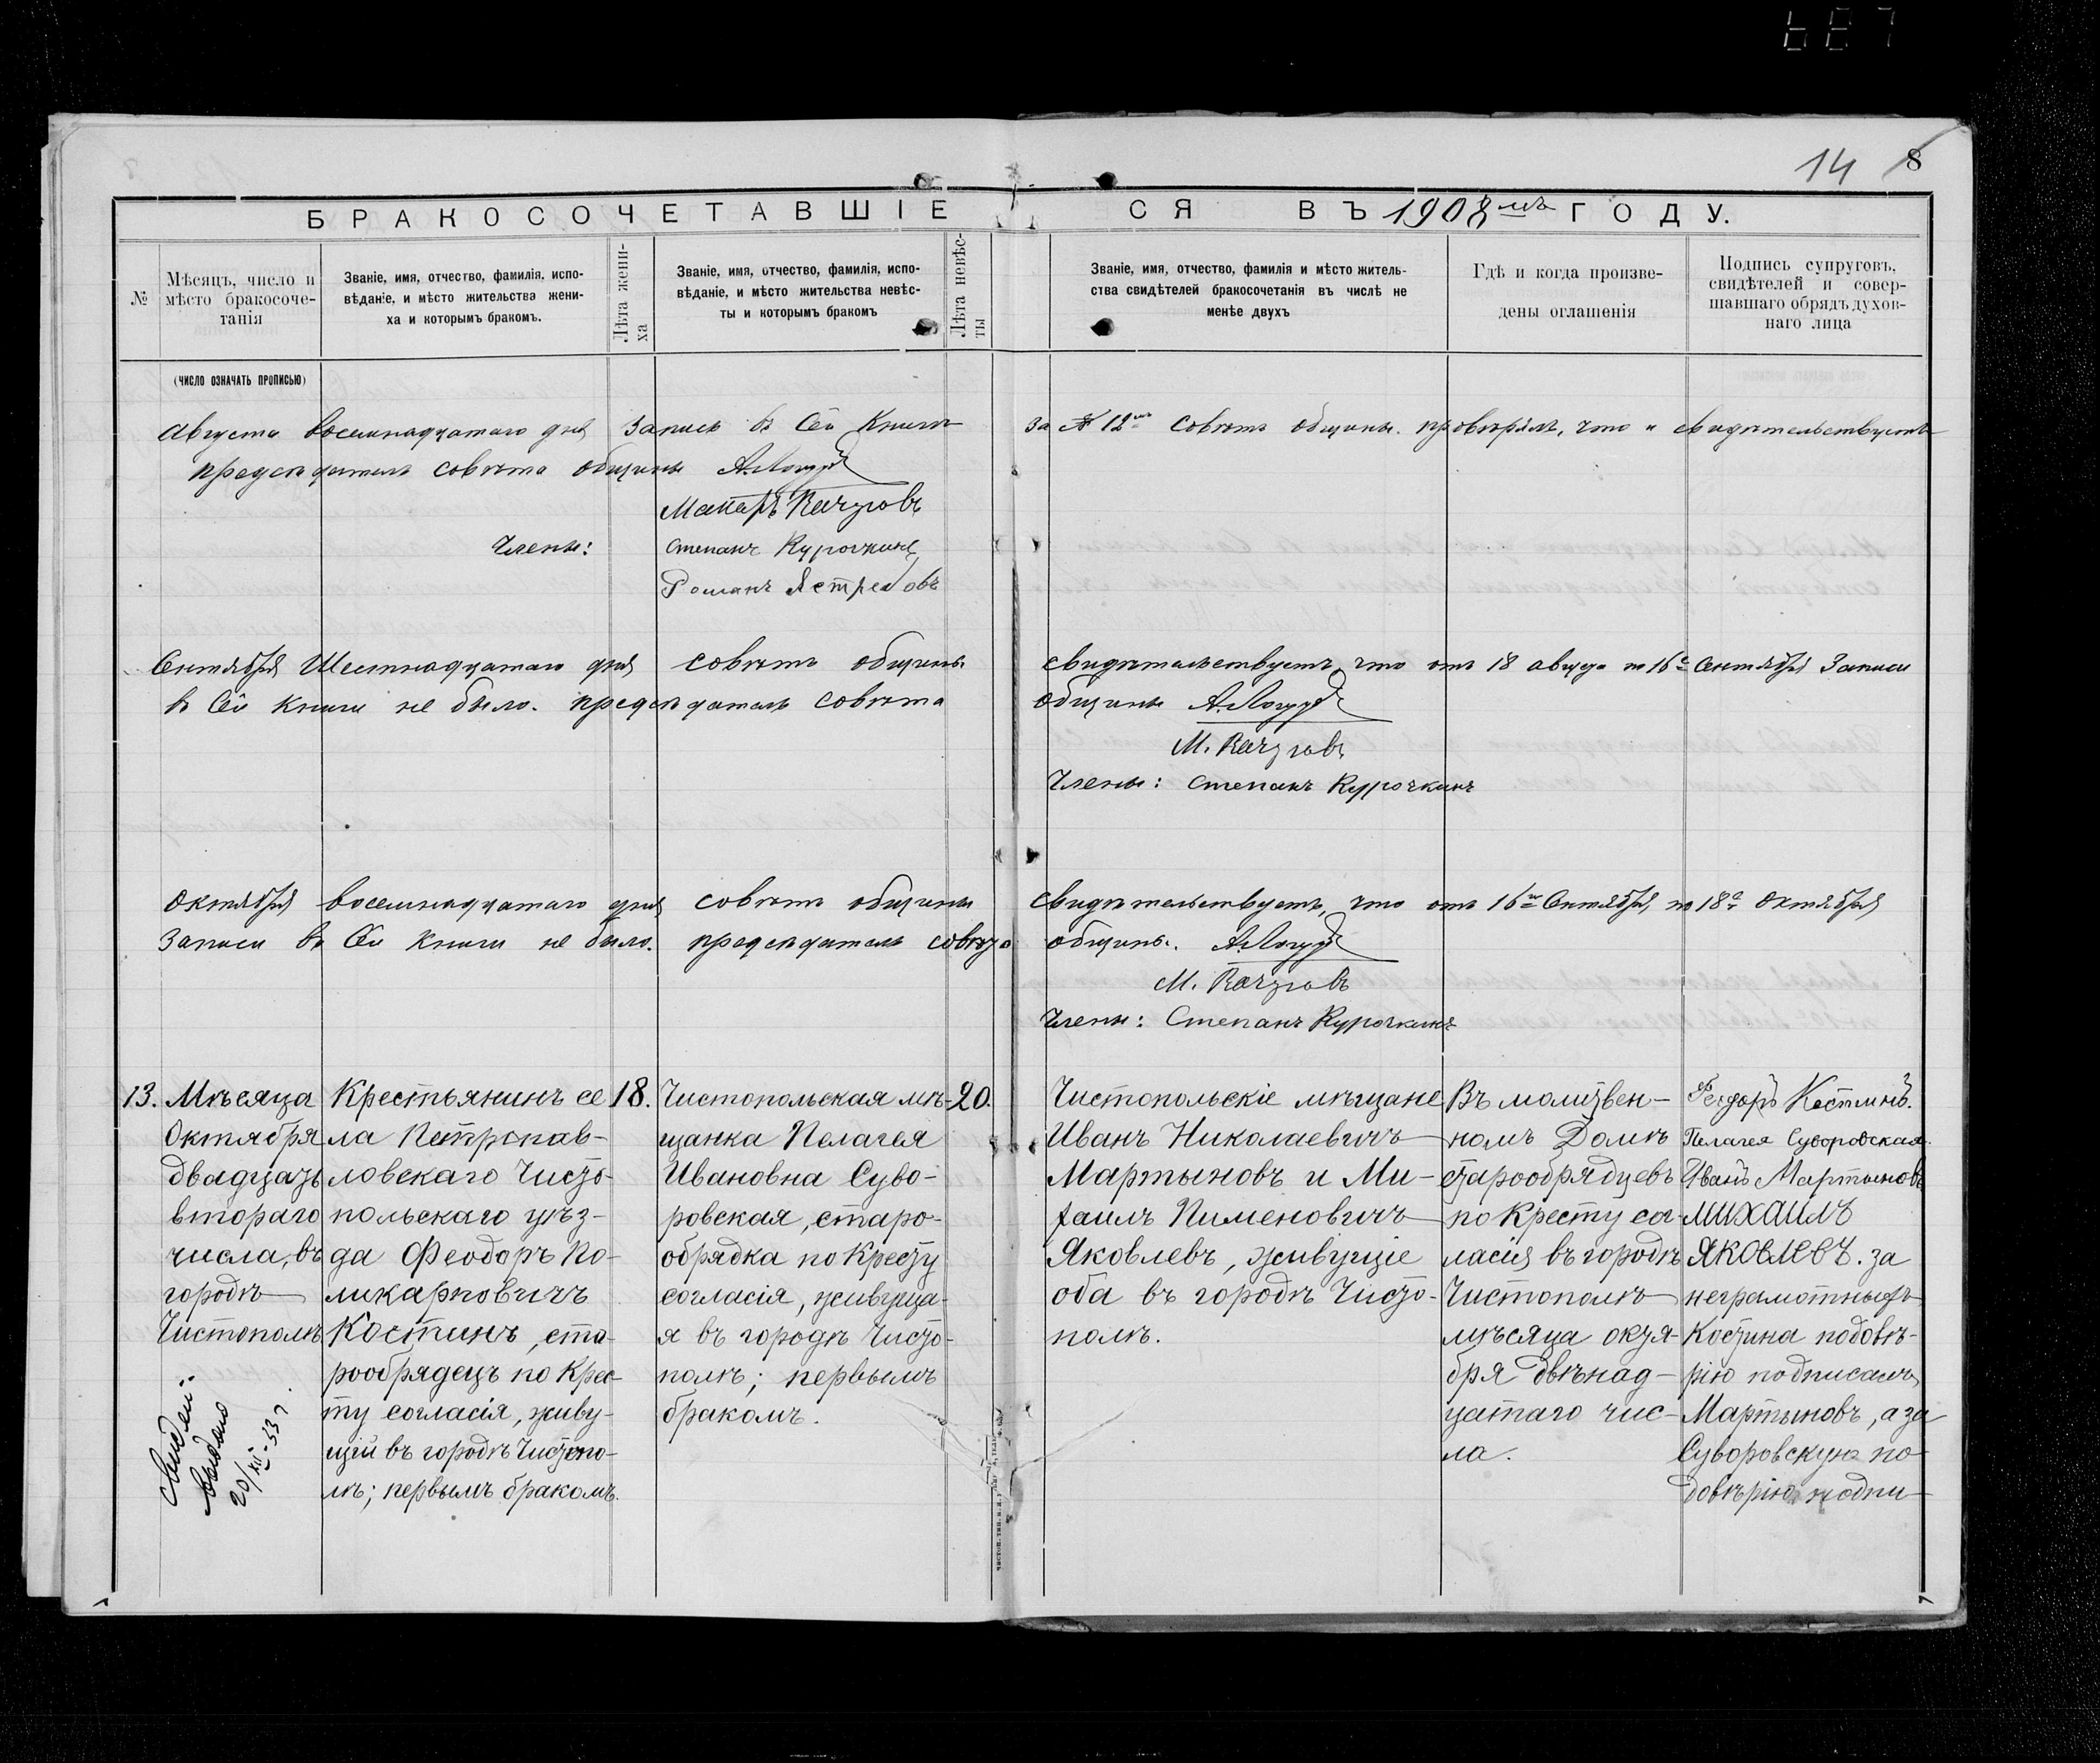 14 8
БРАКОСОЧЕТАВШІЕСЯ ВЪ 1908мъ ГОДУ.
№
Мѣсяцъ, число и
мѣсто бракосоче-
танія
Званіе, имя, отчество, фамилія, испо-
вѣданіе, и мѣсто жительства жени-
ха и которымъ бракомъ.
Лѣта жени-
ха
Званіе, имя, отчество, фамилія, испо-
вѣданіе, и мѣсто жительства невѣс-
ты и которымъ бракомъ
Лѣта невѣс-
ты
Званіе, имя, отчество, фамилія и мѣсто житель-
ства свидѣтелей бракосочетанія въ числѣ не
менѣе двухъ
Гдѣ и когда произве-
дены оглашенія
Подпись супруговъ,
свидѣтелей и совер-
шавшаго обрядъ духов-
наго лица
(ЧИСЛО ОЗНАЧАТЬ ПРОПИСЬЮ)
Августа восемнадцатаго дня Запись въ Сей Книге за № 12м Советъ общины провѣрилъ, что и свидѣтельствуетъ
председатель совѣта общины
Члены: Степанъ Курочкинъ
Романъ Ястребовъ
Сентября Шестнадцатаго дня совѣтъ общины свидѣтельствуетъ что отъ 18 августа по 16е Сентября Записи
въ Сей книги не было. председатель совѣта общины
Члены: Степанъ Курочкинъ
Октября восемнадцатаго дня совѣтъ общины свидѣтельствуетъ, что отъ 16го Сентября, по 18е Октября
Записи въ Сей книги не было. председатель совѣта общины.
Члены: Степанъ Курочкинъ
13.
Мѣсяца
Октября
двадцать
втораго
числа, въ
городѣ
Чистополѣ
Крестьянинъ се
ла Петропав-
ловскаго Чисто-
польскаго уѣз-
да Феодоръ По-
ликарповичъ
Костинъ, ста-
рообрядецъ по Крес-
ту согласія, живу-
щій въ городѣ Чистопо-
лѣ; первымъ бракомъ.
18.
Чистопольская мѣ-
щанка Пелагея
Ивановна Суво-
ровская, старо-
обрядка по Кресту
согласія, живуща-
я въ городѣ Чисто-
полѣ; первымъ
бракомъ.
20.
Чистопольскіе мѣщане
Иванъ Николаевичъ
Мартыновъ и Ми-
хаилъ Пименовичъ
Яковлевъ, живущіе
оба въ городѣ Чисто-
полѣ.
Въ молитвен-
номъ Домѣ
старообрядцевъ
по Кресту со-
ласія въ городѣ
Чистополѣ
мѣсяца октя-
бря двѣнад-
цатаго чис-
ла.
Феодоръ Костинъ.
Пелагея Суворовская.
Иванъ Мартыновъ
МИХАИЛЪ
ЯКОВЛЕВЪ. за
неграмотныхъ
Костина по довѣ-
рію подписалъ
Мартыновъ, а за
Суворовскую по
довѣрію подпи-
выдано
20/XII-33 г.